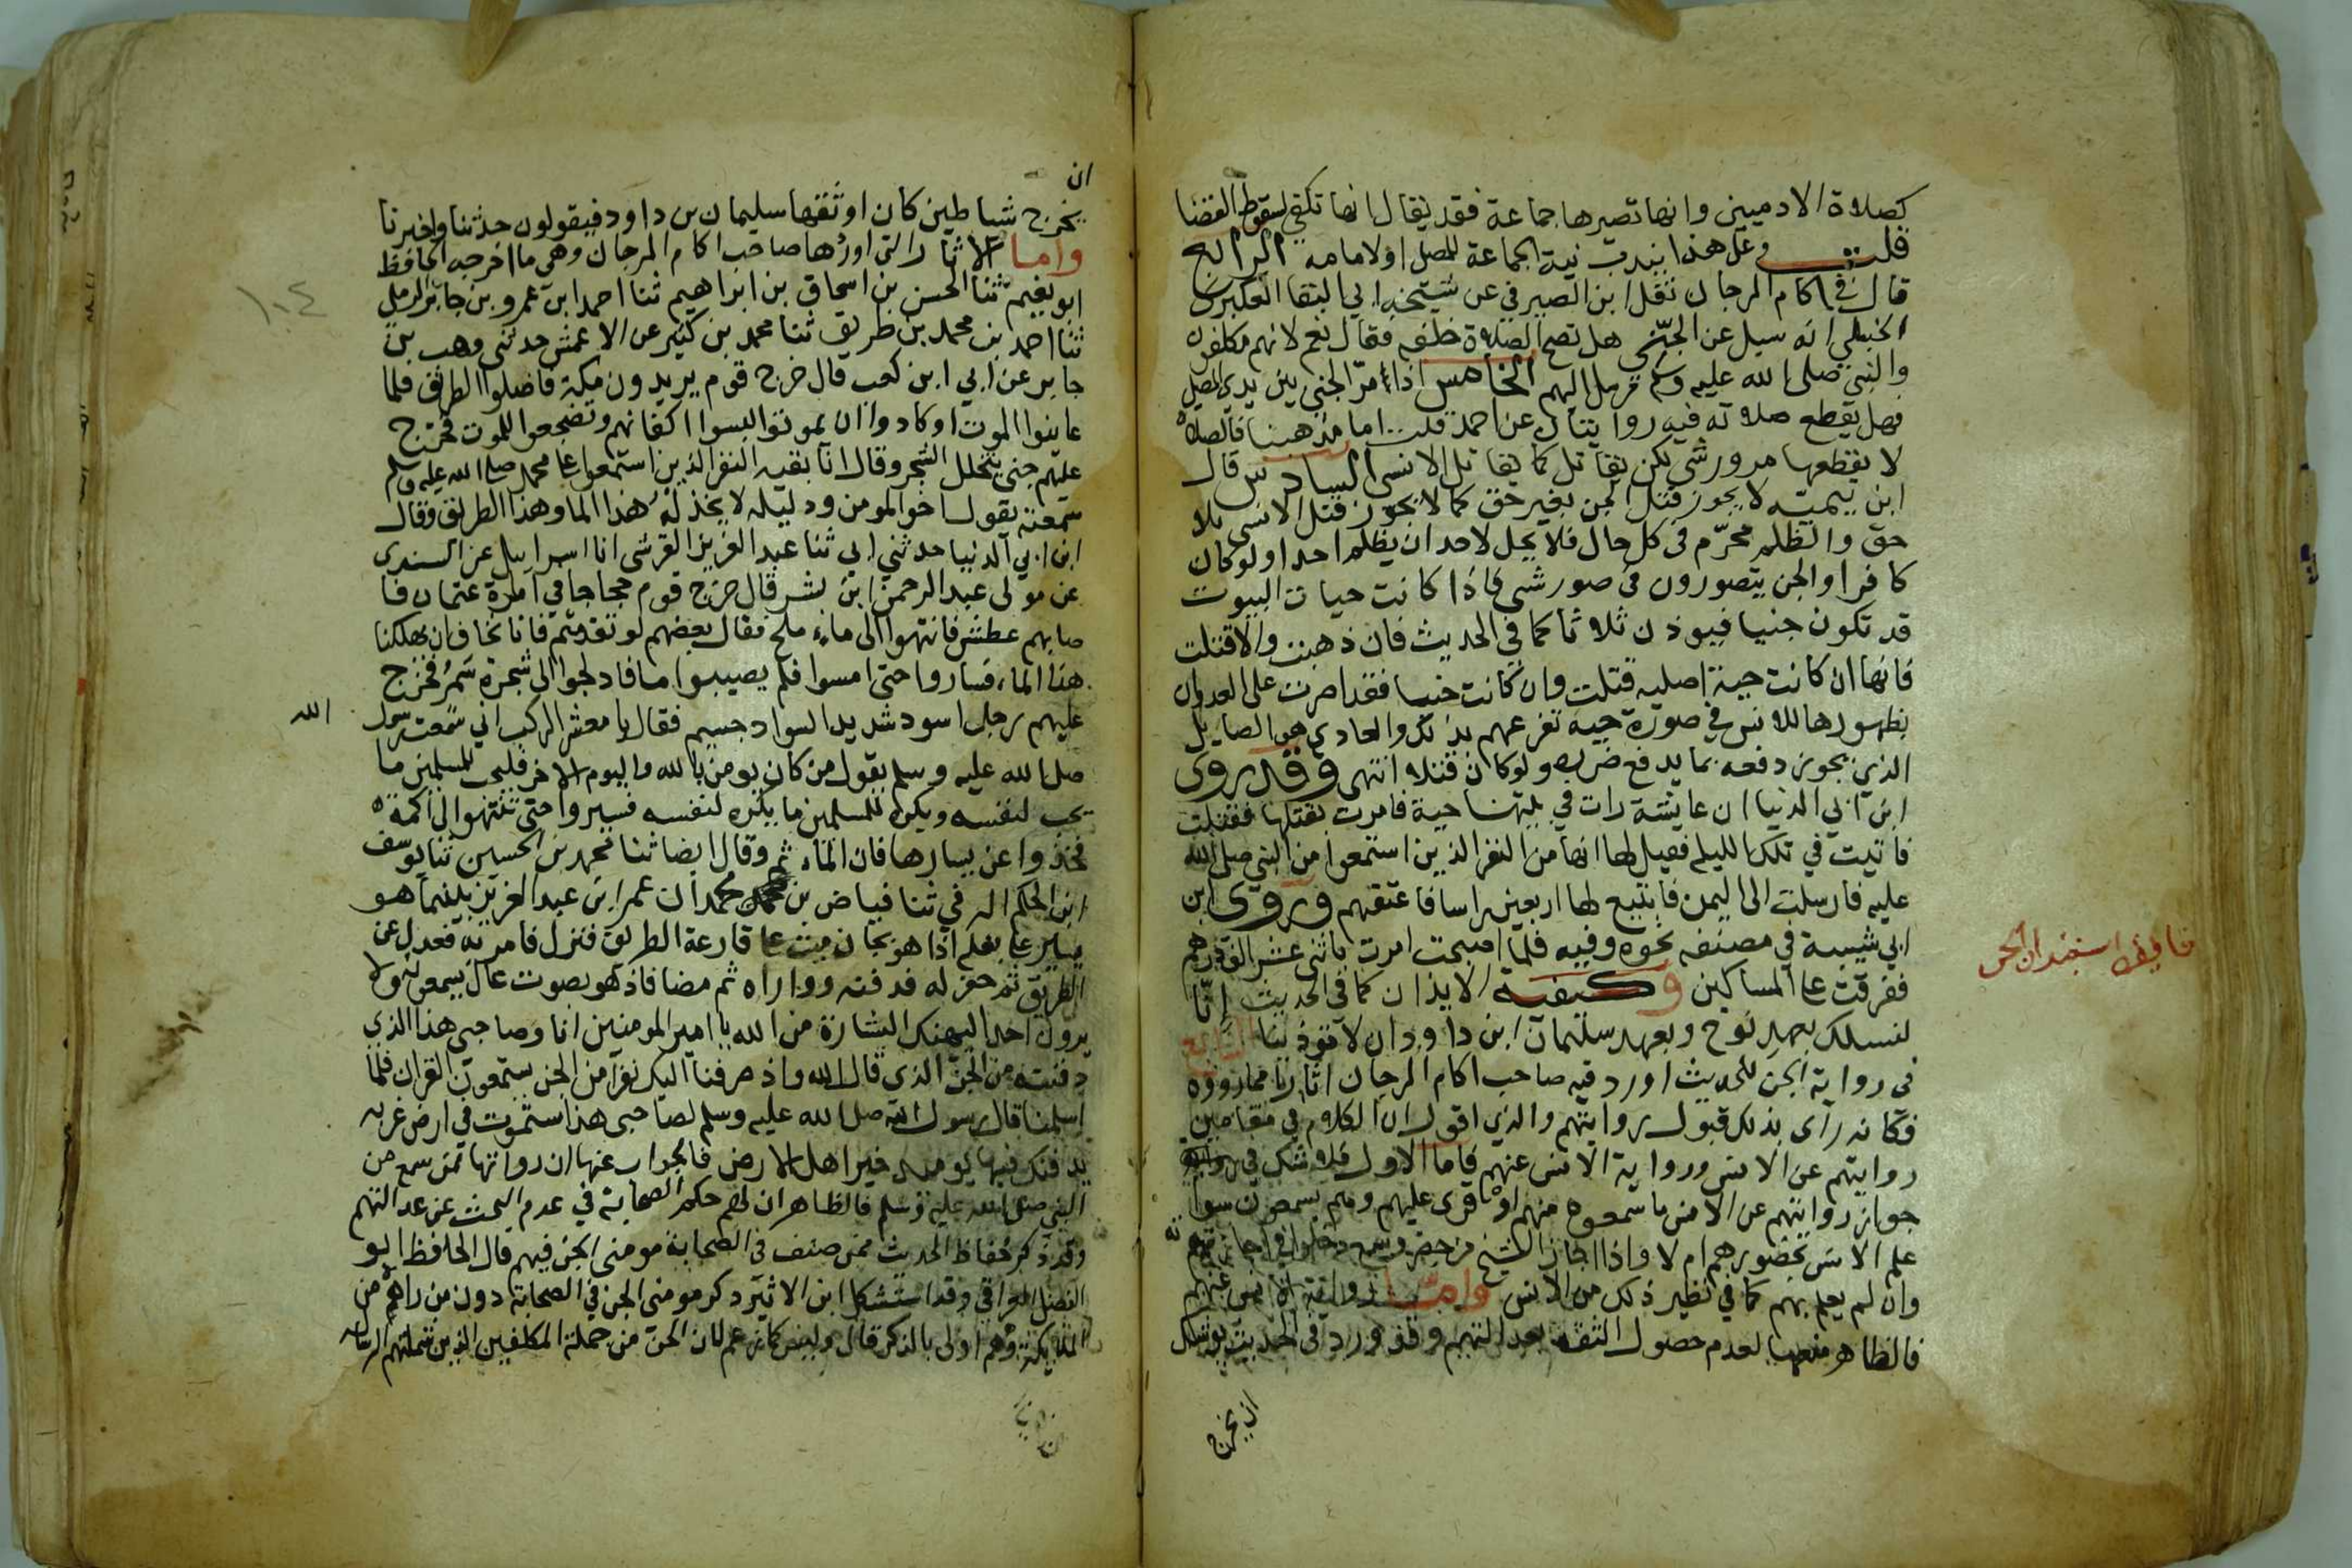 كصلاة الادميين وانها تصيرها جماعة فقد يقال انها تكفي لسقوط القضا
قلت وعلى هذا يندب نية الجماعة للمصلي اولامامه الرابع
قال في اكام المرجان نقل ابن الصيرفي عن شيخه ابي البقا العكبري
الحنبلي انه سيل عن الجني هل تصح الصلاة خلفه فقال نعم لانهم مكلفون
والنبي صلى الله عليه وسلم مرسل اليهم الخامس اذا مر الجني بين يدي المصلي
فهل يقطع صلاته فيه روايتان عن احمد قلت اما مذهبنا فالصلاة
لا يقطعها مرور شي لكن يقاتل كما يقاتل الانسي السادس قال
ابن تيمية لا يجوز قتل الجن بغير حق كما لا يجوز قتل الانسي بلا
حق والظلم محرم في كل حال فلا يحل لاحد ان يظلم احدا ولو كان
كافرا والجن يتصورون في صور شتى فاذا كانت حيات البيوت
قد تكون جنيا فيوذن ثلاثا كما في الحديث فان ذهبت والا قتلت
فانها ان كانت حية اصلية قتلت وان كانت جنيا فقد اصرت على العدوان
بظهورها للانس في صورة حية تفزعهم بذلك والعادي هو الصايل
الذي يجوز دفعه بما يدفع ضرره ولو كان قتلا انتهى وقد روى
ابن ابي الدنيا ان عايشة رات في بيتها حية فامرت بقتلها فقتلت
فاتيت في تلك الليلة فقيل لها انها من النفر الذين استمعوا من النبي صلى الله
عليه فارسلت الى اليمن فابتيع لها اربعين راسا فاعتقتهم وروى ابن
ابي شيبة في مصنفه نحوه وفيه فلما اصبحت امرت باثني عشر الف درهم
ففرقت على المساكين وكيفية الايذان كما في الحديث انا
نسلك بعهد نوح وبعهد سليمان ابن داود ان لا توذينا
في رواية الجن للحديث اورد فيه صاحب اكام المرجان اثارا مما رووه
فكانه راى بذلك قبول روايتهم والذي اقول ان الكلام في مقامين
روايتهم عن الانس ورواية الانس عنهم فاما الاول فلا شك في
جواز روايتهم عن الانس ما سمعوه منهم او قرى عليهم وهم يسمعون سوا
علم الانس بحضورهم ام لا واذا اجاز الشيخ من حضر وسمع دخلوا في اجازته
وان لم يعلم بهم كما في نظير ذلك من الانس واما رواية الانس عنهم
فالظاهر منعها لعدم حصول الثقة بعدالتهم وقد ورد في الحديث يوشك
ان يخرج
ان
يخرج شياطين كان اوثقها سليمان بن داود فيقولون حدثنا واخبرنا
واما الاثار التي اوردها صاحب اكام المرجان وهي ما اخرجه الحافظ
ابو نعيم ثنا الحسن بن اسحاق بن ابراهيم ثنا احمد ابن عمرو بن جابر الرملي
ثنا احمد بن محمد بن طريق ثنا محمد بن كثير عن الاعمش حدثني وهب بن
جابر عن ابي ابن كعب قال خرج قوم يريدون مكة فاضلوا الطريق فلما
عاينوا الموت او كادوا ان يموتوا لبسوا اكفانهم وتضجعوا للموت فخرج
عليهم جني يتخلل الشجر وقال انا بقية النفر الذين استمعوا على محمد صلى الله عليه وسلم
سمعته يقول اخو المومن ودليله لا يخذله هذا الما وهذا الطريق وقال
ابن ابي الدنيا حدثني ابي ثنا عبد العزيز القرشي انا اسرابيل عن السندي
عن مولى عبد الرحمن ابن بشر قال خرج قوم حجاجا في امرة عثمان فا
صابهم عطش فانتهوا الى ماء ملح فقال بعضهم لو تقدمتم فانا نخاف ان يهلكنا
هذا الماء فساروا حتى امسوا فلم يصيبوا ما فادلجوا الى شجرة سمر فخرج
عليهم رجل اسود شديد السواد جسيم فقال يا معشر الركب اني سمعت رسول الله
صلى الله عليه وسلم يقول من كان يومن بالله واليوم الاخر فليحب للمسلمين ما
يحب لنفسه ويكره للمسلمين ما يكره لنفسه فسيروا حتى تنتهوا الى اكمة
فخذوا عن يسارها فان الماء ثم وقال ايضا ثنا محمد بن الحسين ثنا يوسف
ابن الحكم الرقي ثنا فياض بن محمد ان عمر ابن عبد العزيز بينما هو
يسير على بغلة اذا هو بجان ميت على قارعة الطريق فنزل فامر به فعدل عن
الطريق ثم حفر له فدفنه وواراه ثم مضا فاذ هو بصوت عال يسمعونه ولا
يرون احدا ليهنك البشارة من الله يا امير المومنين انا وصاحبي هذا الذي
دفنته من الجن الذي قال الله واذ صرفنا اليك نفرا من الجن يستمعون القران فلما
اسلمنا قال رسول الله صلى الله عليه وسلم لصاحبي هذا ستموت في ارض غربه
يدفنك فيها يوميذ خير اهل الارض فالجواب عنها ان رواتها ممن سمع من
النبي صلى الله عليه وسلم فالظاهر ان لهم حكم الصحابة في عدم البحث عن عدالتهم
وقد ذكر حفاظ الحديث ممن صنف في الصحابة مومني الجن فيهم قال الحافظ ابو
الفضل العراقي وقد استشكل ابن الاثير ذكر مومني الجن في الصحابة دون من راه من
الملايكة وهم اولى بالذكر قال وليس كما زعم لان الجن من جملة المكلفين الذين شملتهم الرسالة
١٠٤